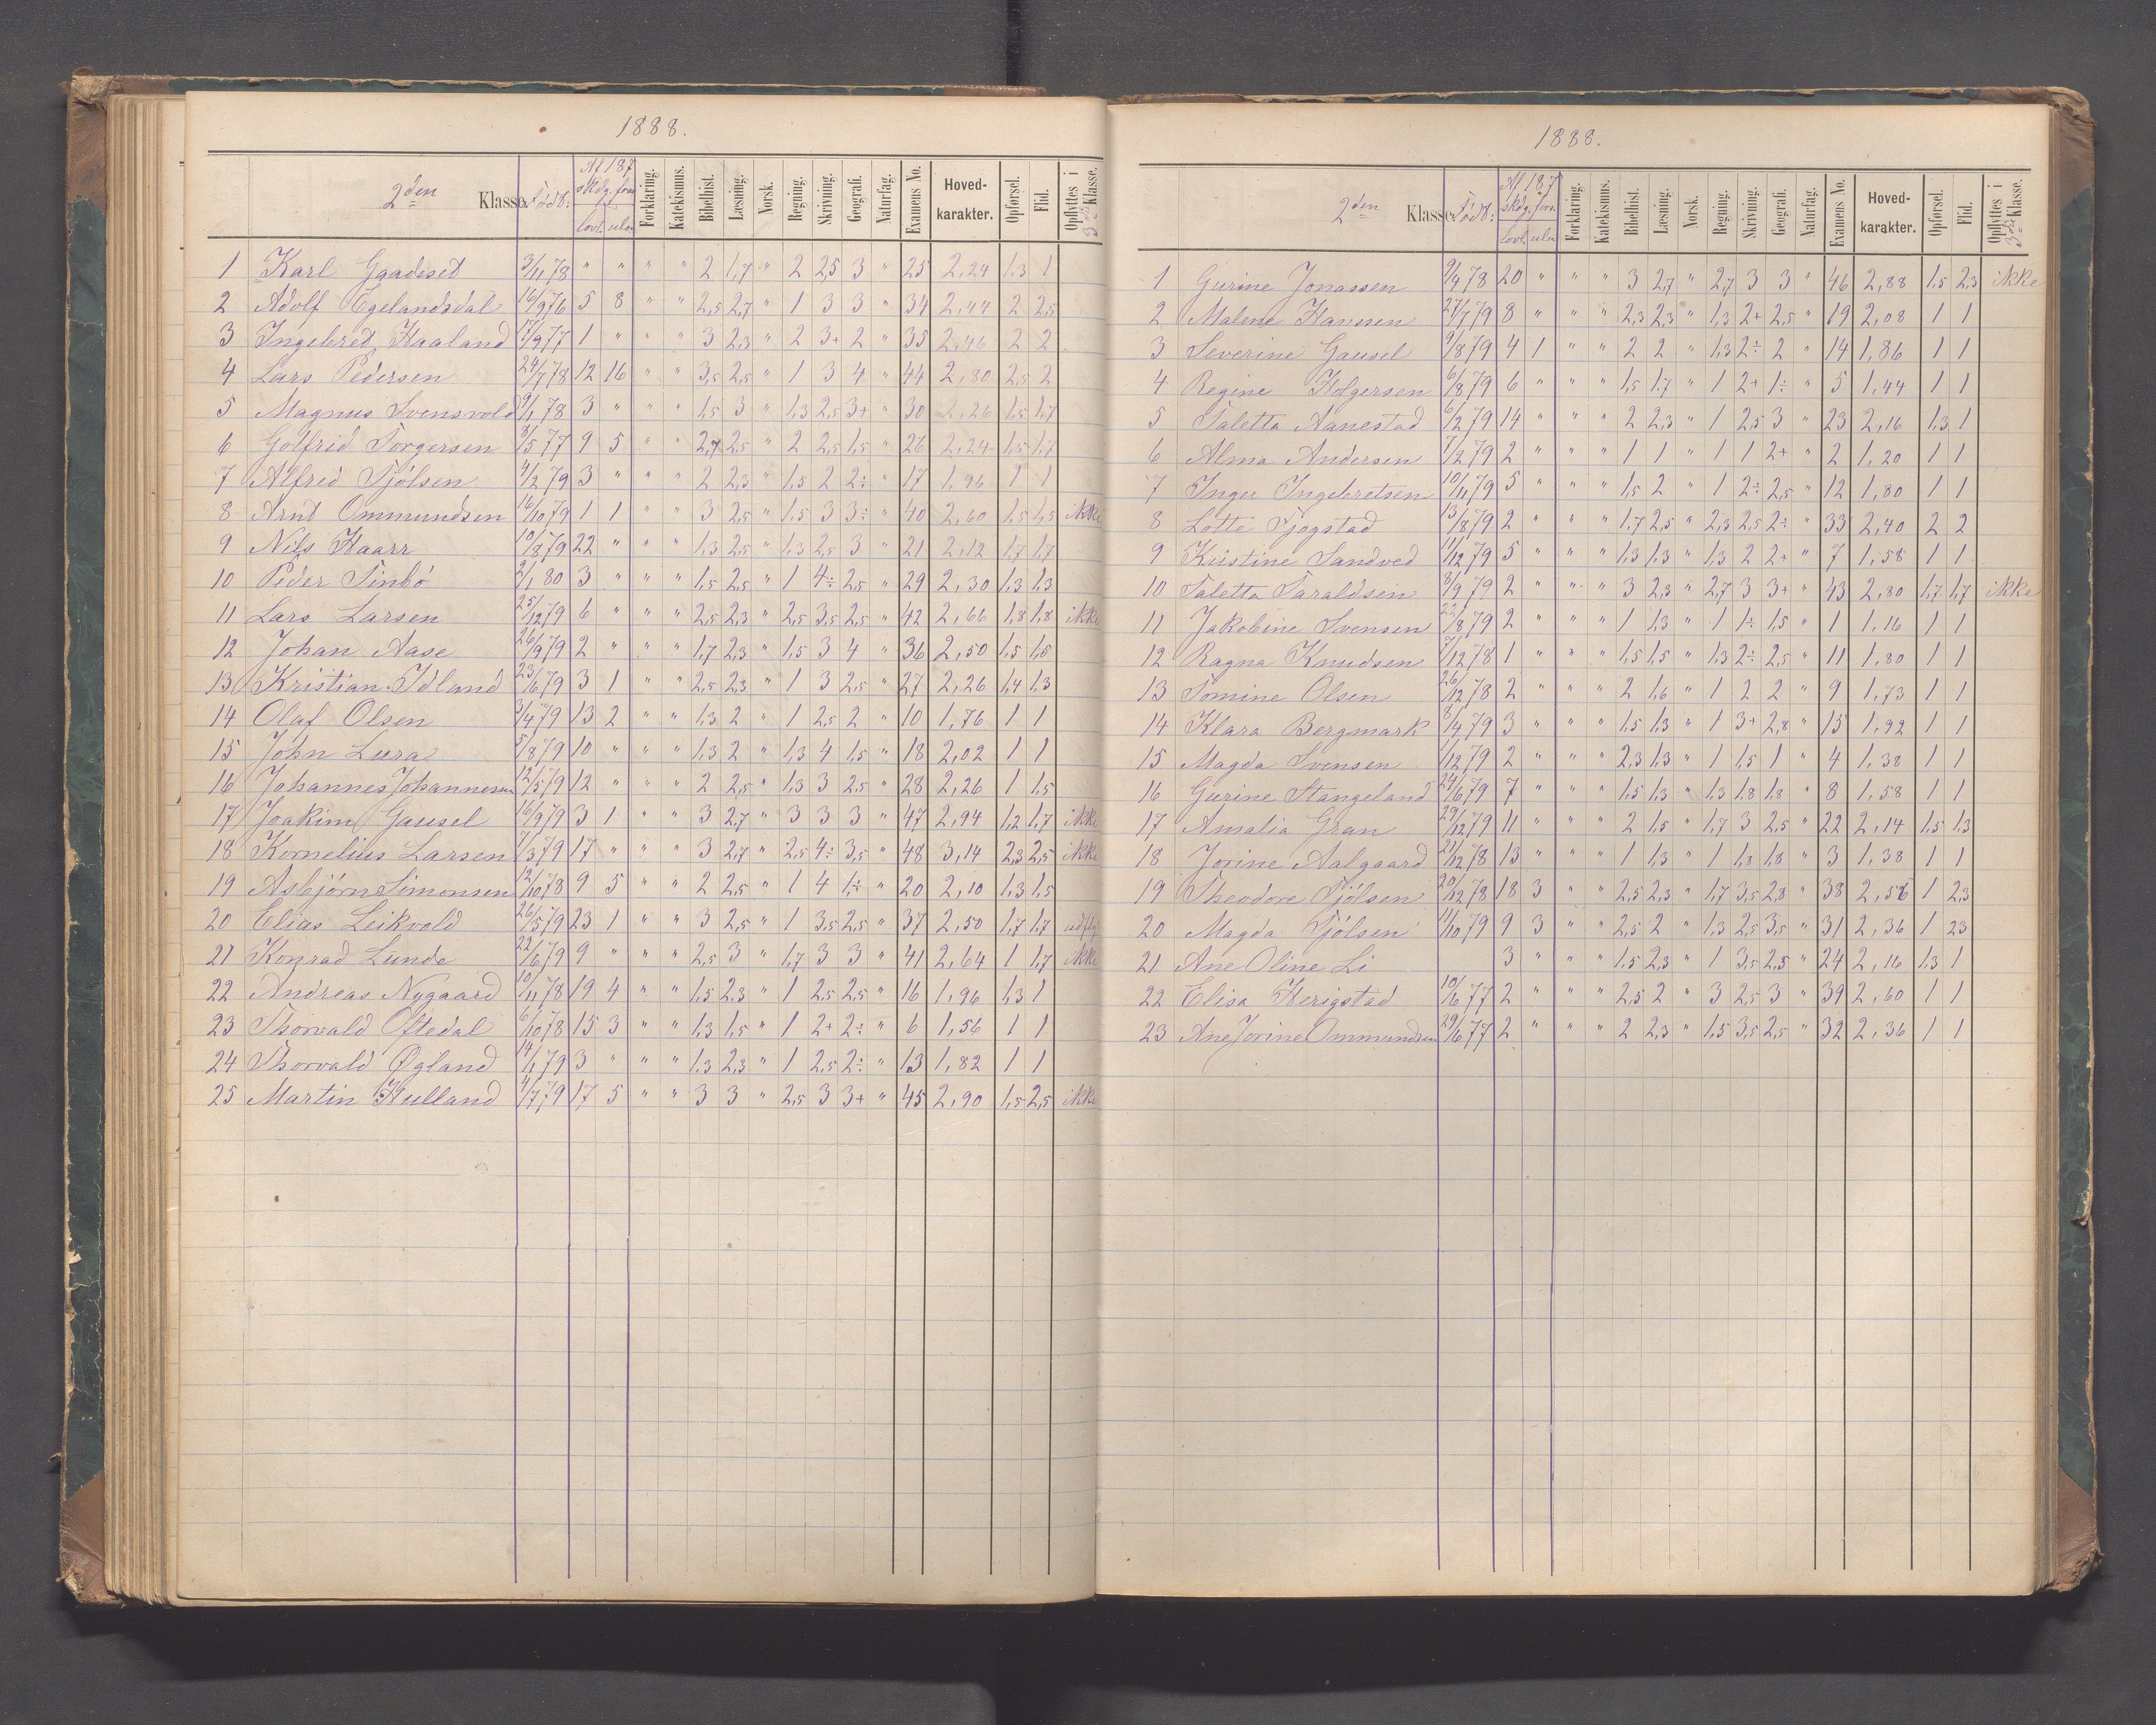 1888.
2den Klasse. Född: Af 187 skdg. fors. lovl. ulov. Forklaring. Katekismus. Bibelhist. Læsning. Norsk. Regning. Skrivning. Geografi. Naturfag. Examens No. Hoved-karakter. Opførsel. Flid. Opflyttes i 3die Klasse.
1 Karl Gaadeset 3/11 78 " " " " 2 1,7 " 2 2,5 3 " 25 2,24 1,3 1
2 Adolf Egelandsdal 16/9 76 5 8 " " 2,5 2,7 " 1 3 3 " 34 2,44 2 2,5
3 Ingebred Haaland 17/9 77 1 " " " 3 2,3 " 2 3+ 2 " 35 2,46 2 2
4 Lars Pedersen 24/7 78 12 16 " " 3,5 2,5 " 1 3 4 " 44 2,80 2,5 2
5 Magnus Svensvold 9/1 78 3 " " " 1,5 3 " 1,3 2,5 3+ " 30 2,26 1,5 1,7
6 Golfrid Torgersen 8/5 77 9 5 " " 2,7 2,5 " 2 2,5 1,5 " 26 2,24 1,5 1,7
7 Alfred Tjölsen 4/2 79 3 " " " 2 2,3 " 1,5 2 2÷ " 17 1,96 1 1
8 Arnt Ommundsen 16/10 79 1 1 " " 3 2,5 " 1,5 3 3÷ " 40 2,60 1,5 1,5 ikke
9 Nils Haarr 10/8 79 22 " " " 1,3 2,5 " 1,3 2,5 3 " 21 2,12 1,7 1,7
10 Peder Tinbö 2/1 80 3 " " " 1,5 2,5 " 1 4÷ 2,5 " 29 2,30 1,3 1,3
11 Lars Larsen 25/12 79 6 " " " 2,5 2,3 " 2,5 3,5 2,5 " 42 2,66 1,8 1,8 ikke
12 Johan Aase 26/9 79 2 " " " 1,7 2,3 " 1,5 3 4 " 36 2,50 1,5 1,5
13 Kristian Idland 23/6 79 3 1 " " 2,5 2,3 " 1 3 2,5 " 27 2,26 1,4 1,3
14 Olaf Olsen 3/4 79 13 2 " " 1,3 2 " 1 2,5 2 " 10 1,76 1 1
15 John Lura 5/8 79 10 " " " 1,3 2 " 1,3 4 1,5 " 18 2,02 1 1
16 Johannes Johannesen 12/5 79 12 " " " 2 2,5 " 1,3 3 2,5 " 28 2,26 1 1,5
17 Joakim Gausel 16/9 79 3 1 " " 3 2,7 " 3 3 3 " 47 2,94 1,2 1,7 ikke
18 Kornelius Larsen 7/3 79 17 " " " 3 2,7 " 2,5 4÷ 3,5 " 48 3,14 2,3 2,5 ikke
19 Asbjörn Simonsen 12/10 78 9 5 " " 2 2,5 " 1 4 1÷ " 20 2,10 1,3 1,5
20 Elias Leikvold 26/5 79 23 1 " " 3 2,5 " 1 3,5 2,5 " 37 2,50 1,7 1,7
21 Konrad Lunde 22/6 79 9 " " " 2,5 3 " 1,7 3 3 " 41 2,64 1 1,7 ikke
22 Andreas Nygaard 10/11 78 19 4 " " 1,5 2,3 " 1 2,5 2,5 " 16 1,96 1,3 1
23 Thorvald Oftedal 6/10 78 15 3 " " 1,3 1,5 " 1 2+ 2÷ " 6 1,56 1 1
24 Thorvald Øgland 14/1 79 3 " " " 1,3 2,3 " 1 2,5 2÷ " 13 1,82 1 1
25 Martin Hulland 4/7 79 17 5 " " 3 3 " 2,5 3 3+ " 45 2,90 1,5 2,5 ikke
1888.
2den Klasse. Född: Af 187 skdg. fors. lovl. ulov. Forklaring. Katekismus. Bibelhist. Læsning. Norsk. Regning. Skrivning. Geografi. Naturfag. Examens No. Hoved-karakter. Opførsel. Flid. Opflyttes i 3die Klasse.
1 Gurine Jonassen 9/9 78 20 " " " 3 2,7 " 2,7 3 3 " 46 2,88 1,5 2,3 ikke
2 Malene Hanssen 27/7 79 8 " " " 2,3 2,3 " 1,3 2+ 2,5 " 19 2,08 1 1
3 Severine Gausel 9/8 79 4 1 " " 2 2 " 1,3 2÷ 2 " 14 1,86 1 1
4 Regine Holgersen 6/8 79 6 " " " 1,5 1,7 " 1 2+ 1÷ " 5 1,44 1 1
5 Taletta Aanestad 6/2 79 14 " " " 2 2,3 " 1 2,5 3 " 23 2,16 1,3 1
6 Alma Andersen 7/2 79 2 " " " 1 1 " 1 1 2+ " 2 1,20 1 1
7 Inger Ingebretsen 10/11 79 5 " " " 1,5 2 " 1 2÷ 2,5 " 12 1,80 1 1
8 Lotte Tjogstad 13/8 79 2 " " " 1,7 2,5 " 2,3 2,5 2÷ " 33 2,40 2 2
9 Kristine Sandved 11/12 79 5 " " " 1,3 1,3 " 1,3 2 2+ " 7 1,58 1 1
10 Taletta Taraldsen 8/9 79 2 " " " 3 2,3 " 2,7 3 3+ " 43 2,80 1,7 1,7 ikke
11 Jakobine Svensen 22/8 79 2 " " " 1 1,3 " 1 1÷ 1,5 " 1 1,16 1 1
12 Ragna Knudsen 7/12 78 1 " " " 1,5 1,5 " 1,3 2÷ 2,5 " 11 1,80 1 1
13 Tomine Olsen 26/12 78 2 " " " 2 1,6 " 1 2 2 " 9 1,73 1 1
14 Klara Bergmark 8/9 79 3 " " " 1,5 1,3 " 1 3+ 2,8 " 15 1,92 1 1
15 Magda Svensen 1/12 79 2 " " " 2,3 1,3 " 1 1,5 1 " 4 1,38 1 1
16 Gurine Stangeland 24/6 79 7 " " " 1,5 1,3 " 1,3 1,8 1,8 " 8 1,58 1 1
17 Amalia Gran 29/12 79 11 " " " 2 1,5 " 1,7 3 2,5 " 22 2,14 1,5 1,3
18 Jorine Aalgaard 21/12 78 13 " " " 1 1,3 " 1 1,8 1,8 " 3 1,38 1 1
19 Theodore Tjölsen 20/12 78 18 3 " " 2,5 2,3 " 1,7 3,5 2,8 " 38 2,56 1 2,3
20 Magda Tjölsen 11/10 79 9 3 " " 2,5 2 " 1,3 2,5 3,5 " 31 2,36 1 23
21 Ane Oline Li 3 " " " 1,5 2,3 " 1 3,5 2,5 " 24 2,16 1,3 1
22 Elisa Herigstad 10/6 77 2 " " " 2,5 2 " 3 2,5 3 " 39 2,60 1 1
23 Ane Jorine Ommundsen 29/6 77 2 " " " 2 2,3 " 1,5 3,5 2,5 " 32 2,36 1 1